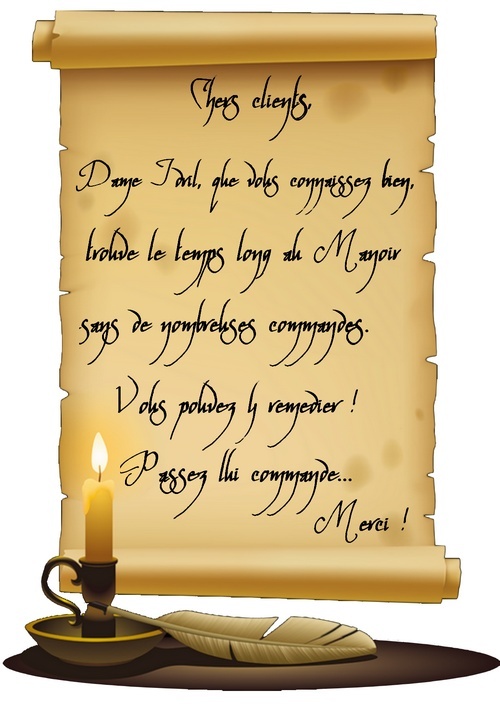 Chers clients,
Dame Idril, que vous connaissez bien,
trouve le temps long au Manoir
sans de nombreuses commandes.
Vous pouvez y remedier !
Passez lui commande...
Merci !